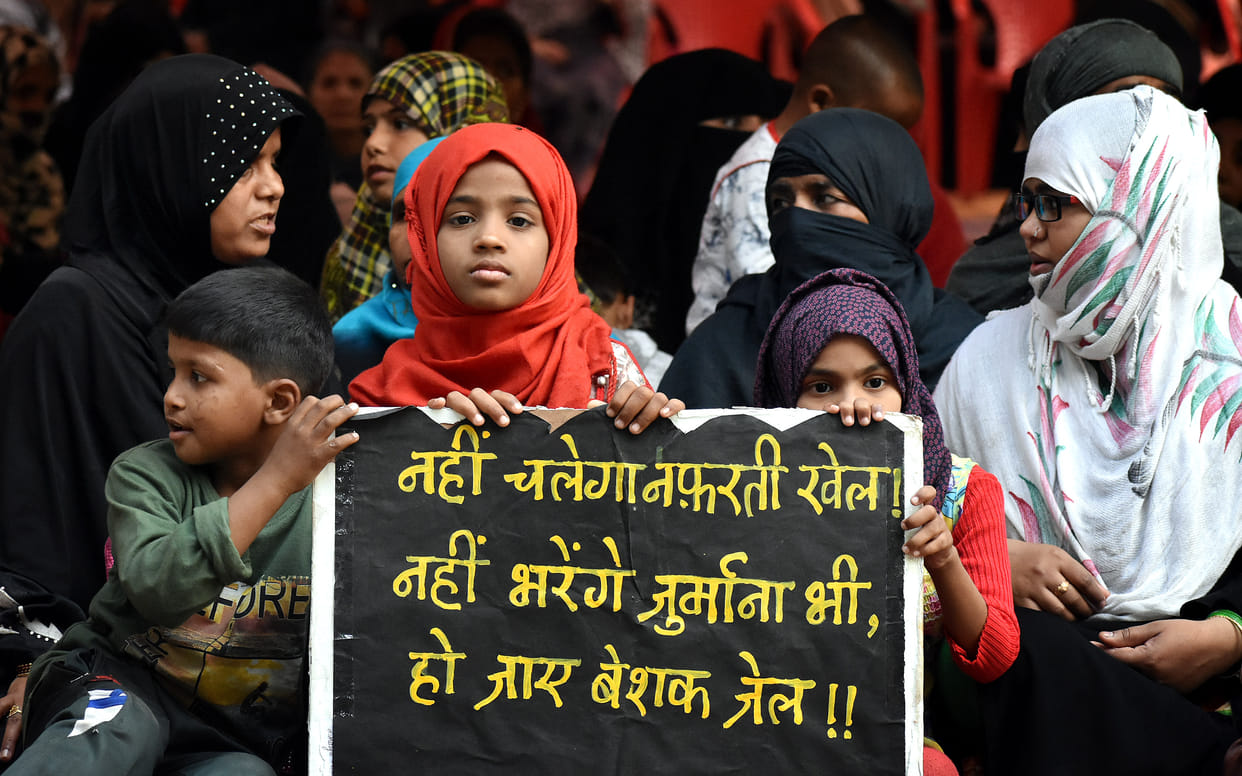 नहीं चलेगा नफ़रती खेल!
नहीं भरेंगे जुर्माना भी,
हो जाए बेशक जेल!!